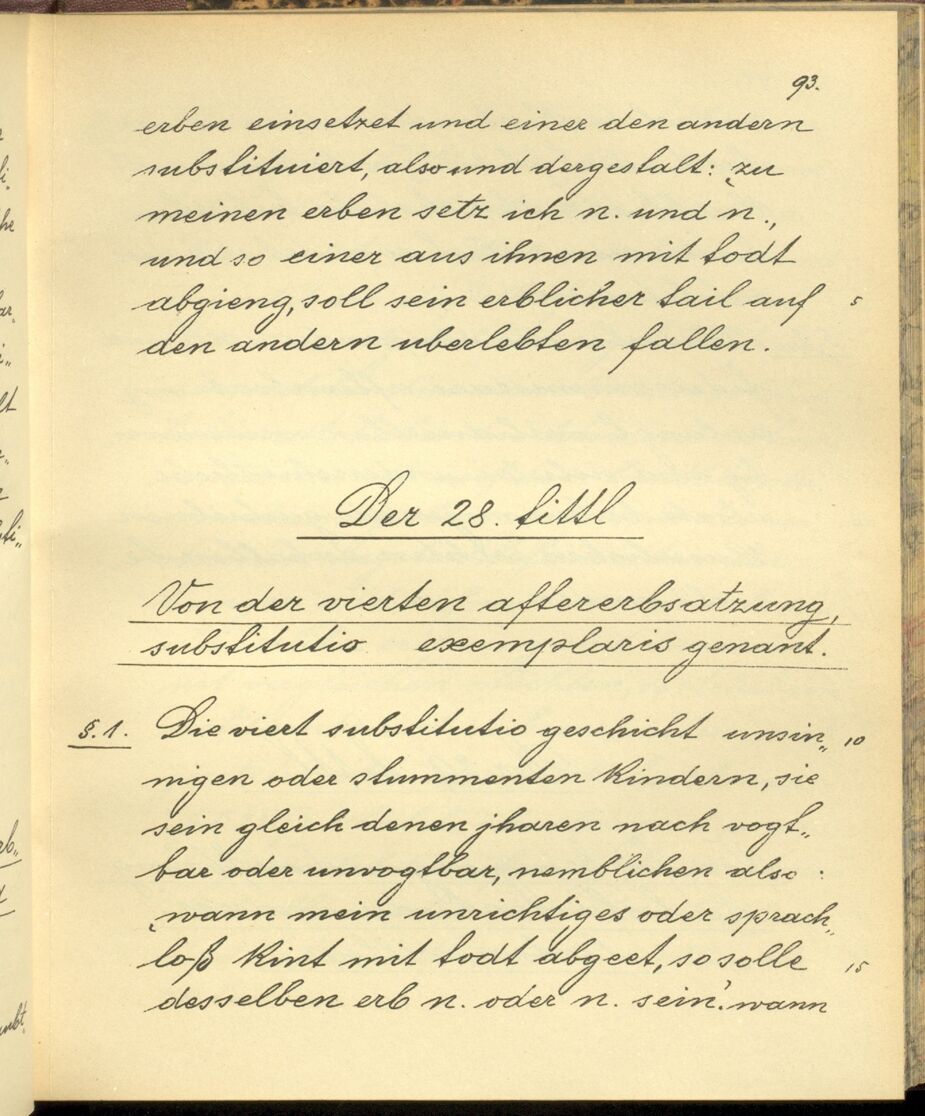 93.
erben einsetzet und einer den andern
substituiert, also und dergestalt: ‚zu
meinen erben setz ich n. und n.,
und so einer aus ihnen mit todt
abgieng, soll sein erblicher tail auf 5
den andern uberlebten fallen.
Der 28. tittl
Von der vierten aftererbsatzung,
substitutio exemplaris genant.
§. 1. Die viert substitutio geschicht unsin„ 10
nigen oder stummenten kindern, sie
sein gleich denen jharen nach vogt„
bar oder unvogtbar, nemblichen also:
‚wann mein unrichtiges oder sprach„
loß kint mit todt abgeet, so solle 15
desselben erb n. oder n. sein‘. wann